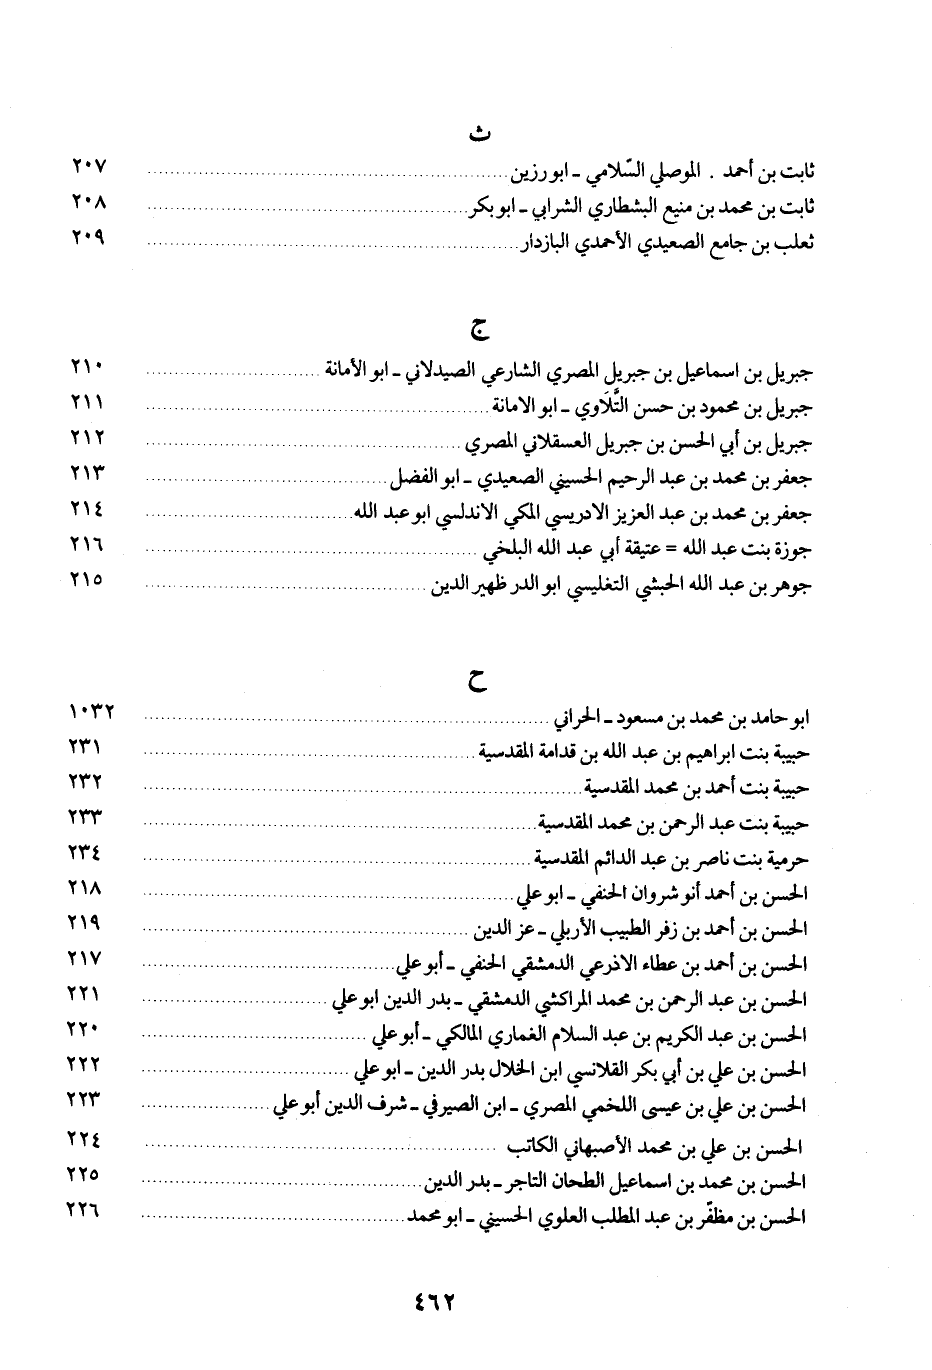 ث
ثابت بن أحمد . الموصلي السّلامي ـ ابورزين ٢٠٧
ثابت بن محمد بن منيع البشطاري الشرابي ـ ابوبكر ٢٠٨
ثعلب بن جامع الصعيدي الأحمدي البازدار ٢٠٩
ج
جبريل بن اسماعيل بن جبريل المصري الشارعي الصيدلاني ـ ابو الأمانة ٢١٠
جبريل بن محمود بن حسن التَّلَاوي ـ ابو الامانة ٢١١
جبريل بن أبي الحسن بن جبريل العسقلاني المصري ٢١٢
جعفر بن محمد بن عبد الرحيم الحسيني الصعيدي ـ ابو الفضل ٢١٣
جعفر بن محمد بن عبد العزيز الادريسي المكي الاندلسي ابو عبد الله ٢١٤
جوزة بنت عبد الله = عتيقة أبي عبد الله البلخي ٢١٦
جوهر بن عبد الله الحبشي التغليسي ابو الدر ظهير الدين ٢١٥
ح
ابو حامد بن محمد بن مسعود ـ الحراني ١٠٣٢
حبيبة بنت ابراهيم بن عبد الله بن قدامة المقدسية ٢٣١
حبيبة بنت أحمد بن محمد المقدسية ٢٣٢
حبيبة بنت عبد الرحمن بن محمد المقدسية ٢٣٣
حرمية بنت ناصر بن عبد الدائم المقدسية ٢٣٤
الحسن بن أحمد أنو شروان الحنفي ـ ابو علي ٢١٨
الحسن بن أحمد بن زفر الطبيب الأربلي ـ عز الدين ٢١٩
الحسن بن أحمد بن عطاء الاذرعي الدمشقي الحنفي ـ أبو علي ٢١٧
الحسن بن عبد الرحمن بن محمد المراكشي الدمشقي ـ بدر الدين ابو علي ٢٢١
الحسن بن عبد الكريم بن عبد السلام الغماري المالكي ـ أبو علي ٢٢٠
الحسن بن علي بن أبي بكر القلانسي ابن الخلال بدر الدين ـ ابو علي ٢٢٢
الحسن بن علي بن عيسى اللخمي المصري ـ ابن الصيرفي ـ شرف الدين أبو علي ٢٢٣
الحسن بن علي بن محمد الأصبهاني الكاتب ٢٢٤
الحسن بن محمد بن اسماعيل الطحان التاجر ـ بدر الدين ٢٢٥
الحسن بن مظفّر بن عبد المطلب العلوي الحسيني ـ ابو محمد ٢٢٦
٤٦٢